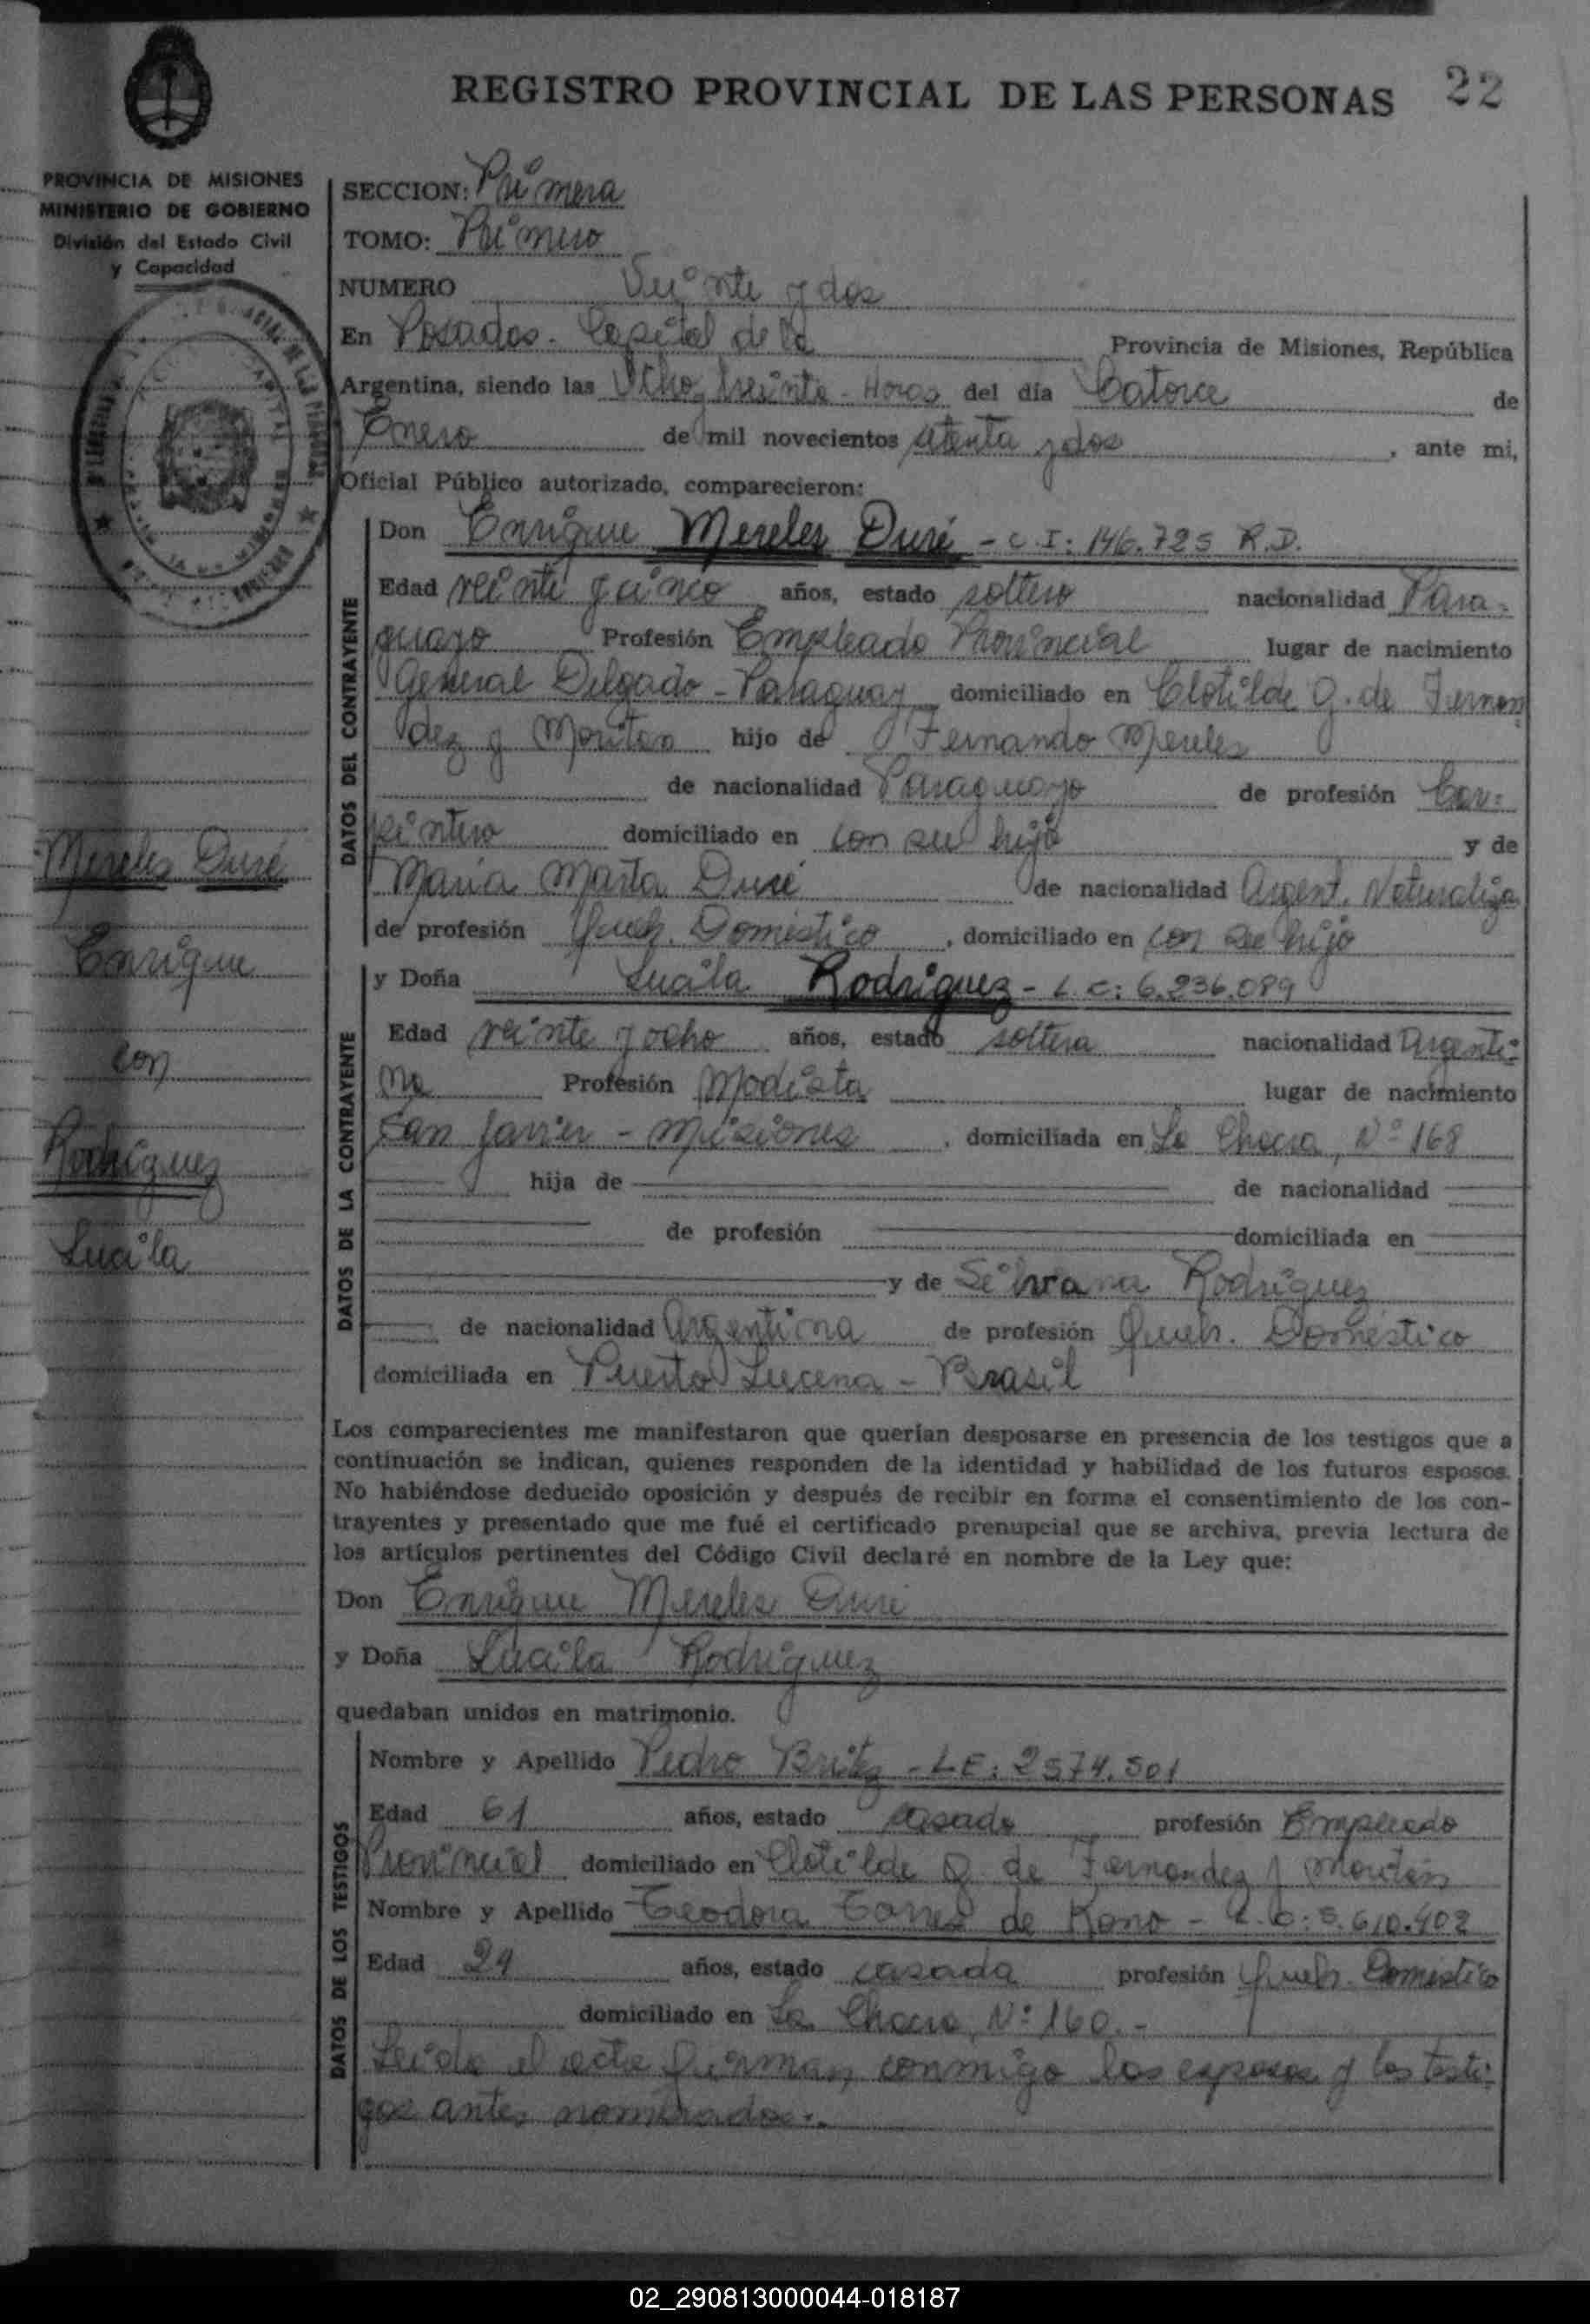 REGISTRO PROVINCIAL DE LAS PERSONAS 22
PROVINCIA DE MISIONES
MINISTERIO DE GOBIERNO
División del Estado Civil
y Capacidad
SECCION: Primera
TOMO: Primero
NUMERO Veinte y dos
En Posadas - Capital de la Provincia de Misiones, República
Argentina, siendo las Ocho, treinta - Horas del día Catorce de
Enero de mil novecientos setenta y dos, ante mi,
Oficial Público autorizado, comparecieron:
DATOS DEL CONTRAYENTE
Don Enrique Mereles Duré - C.I: 146.725 R.D.
Edad veinte y cinco años, estado soltero nacionalidad Para-
guayo Profesión Empleado Provincial lugar de nacimiento
General Delgado - Paraguay domiciliado en Clotilde G. de Fernan
dez y Moritan hijo de Fernando Mereles
de nacionalidad Paraguayo de profesión Car-
pintero domiciliado en con su hijo y de
Maria Marta Duré de nacionalidad Argent. Naturaliza
de profesión Queh. Domestico, domiciliado en con su hijo
Mereles Duré
Enrique
con
Rodriguez
Lucila
DATOS DE LA CONTRAYENTE
y Doña Lucila Rodriguez - L.C: 6.236.089
Edad veinte y ocho años, estado soltera nacionalidad Argenti-
na Profesión Modista lugar de nacimiento
San Javier - Misiones, domiciliada en La Chacra, Nº 168
hija de de nacionalidad
de profesión domiciliada en
y de Silvana Rodriguez
de nacionalidad Argentina de profesión Queh. Domestico
domiciliada en Puerto Lucena - Brasil
Los comparecientes me manifestaron que querían desposarse en presencia de los testigos que a
continuación se indican, quienes responden de la identidad y habilidad de los futuros esposos.
No habiéndose deducido oposición y después de recibir en forma el consentimiento de los con-
trayentes y presentado que me fué el certificado prenupcial que se archiva, previa lectura de
los artículos pertinentes del Código Civil declaré en nombre de la Ley que:
Don Enrique Mereles Duré
y Doña Lucila Rodriguez
quedaban unidos en matrimonio.
DATOS DE LOS TESTIGOS
Nombre y Apellido Pedro Britez - L.E: 2574.501
Edad 61 años, estado casado profesión Empleado
Provincial domiciliado en Clotilde G. de Fernandez y Moritan
Nombre y Apellido Teodora Torres de Kono - L.C: 5.610.402
Edad 24 años, estado casada profesión Queh. Domestico
domiciliado en La Chacra, Nº 160.-
Leida el acta firman conmigo los esposos y los testi-
gos antes nombrados.-
02_290813000044-018187